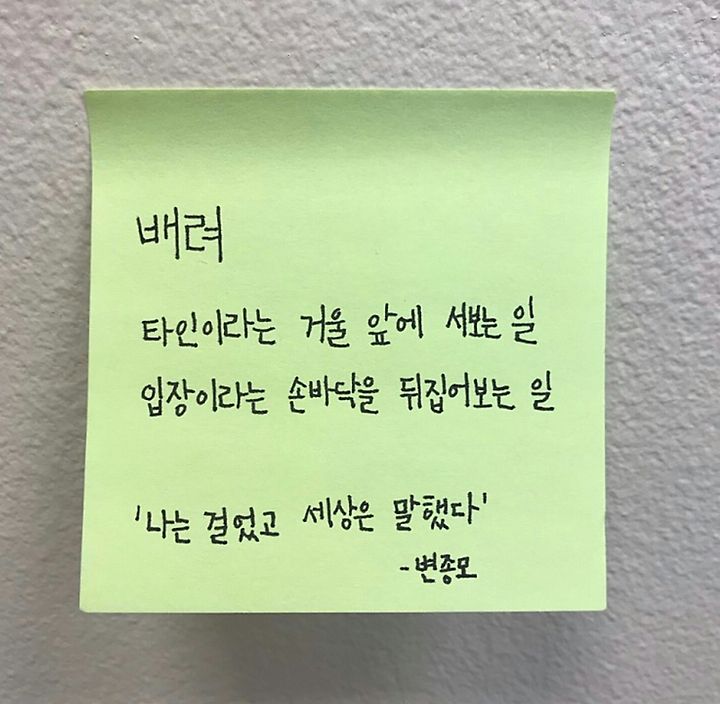 배려
타인이라는 거울 앞에 서보는 일
입장이라는 손바닥을 뒤집어보는 일
'나는 걸었고 세상은 말했다'
-변종모